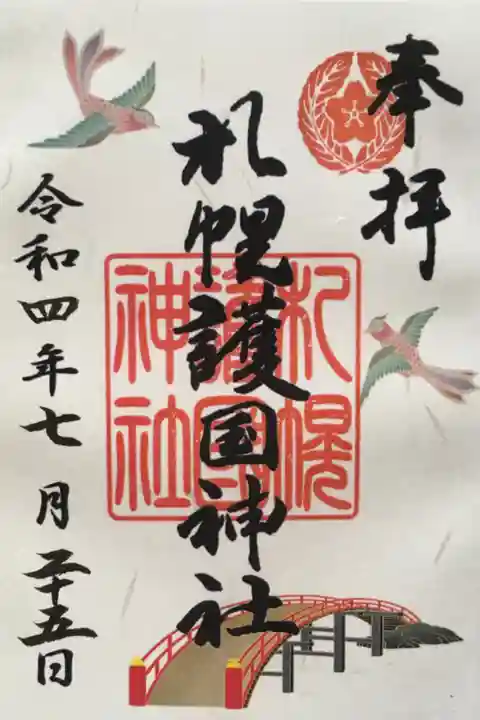 奉拝
札幌護国神社
札幌
護國
神社
令和四年七月二十五日